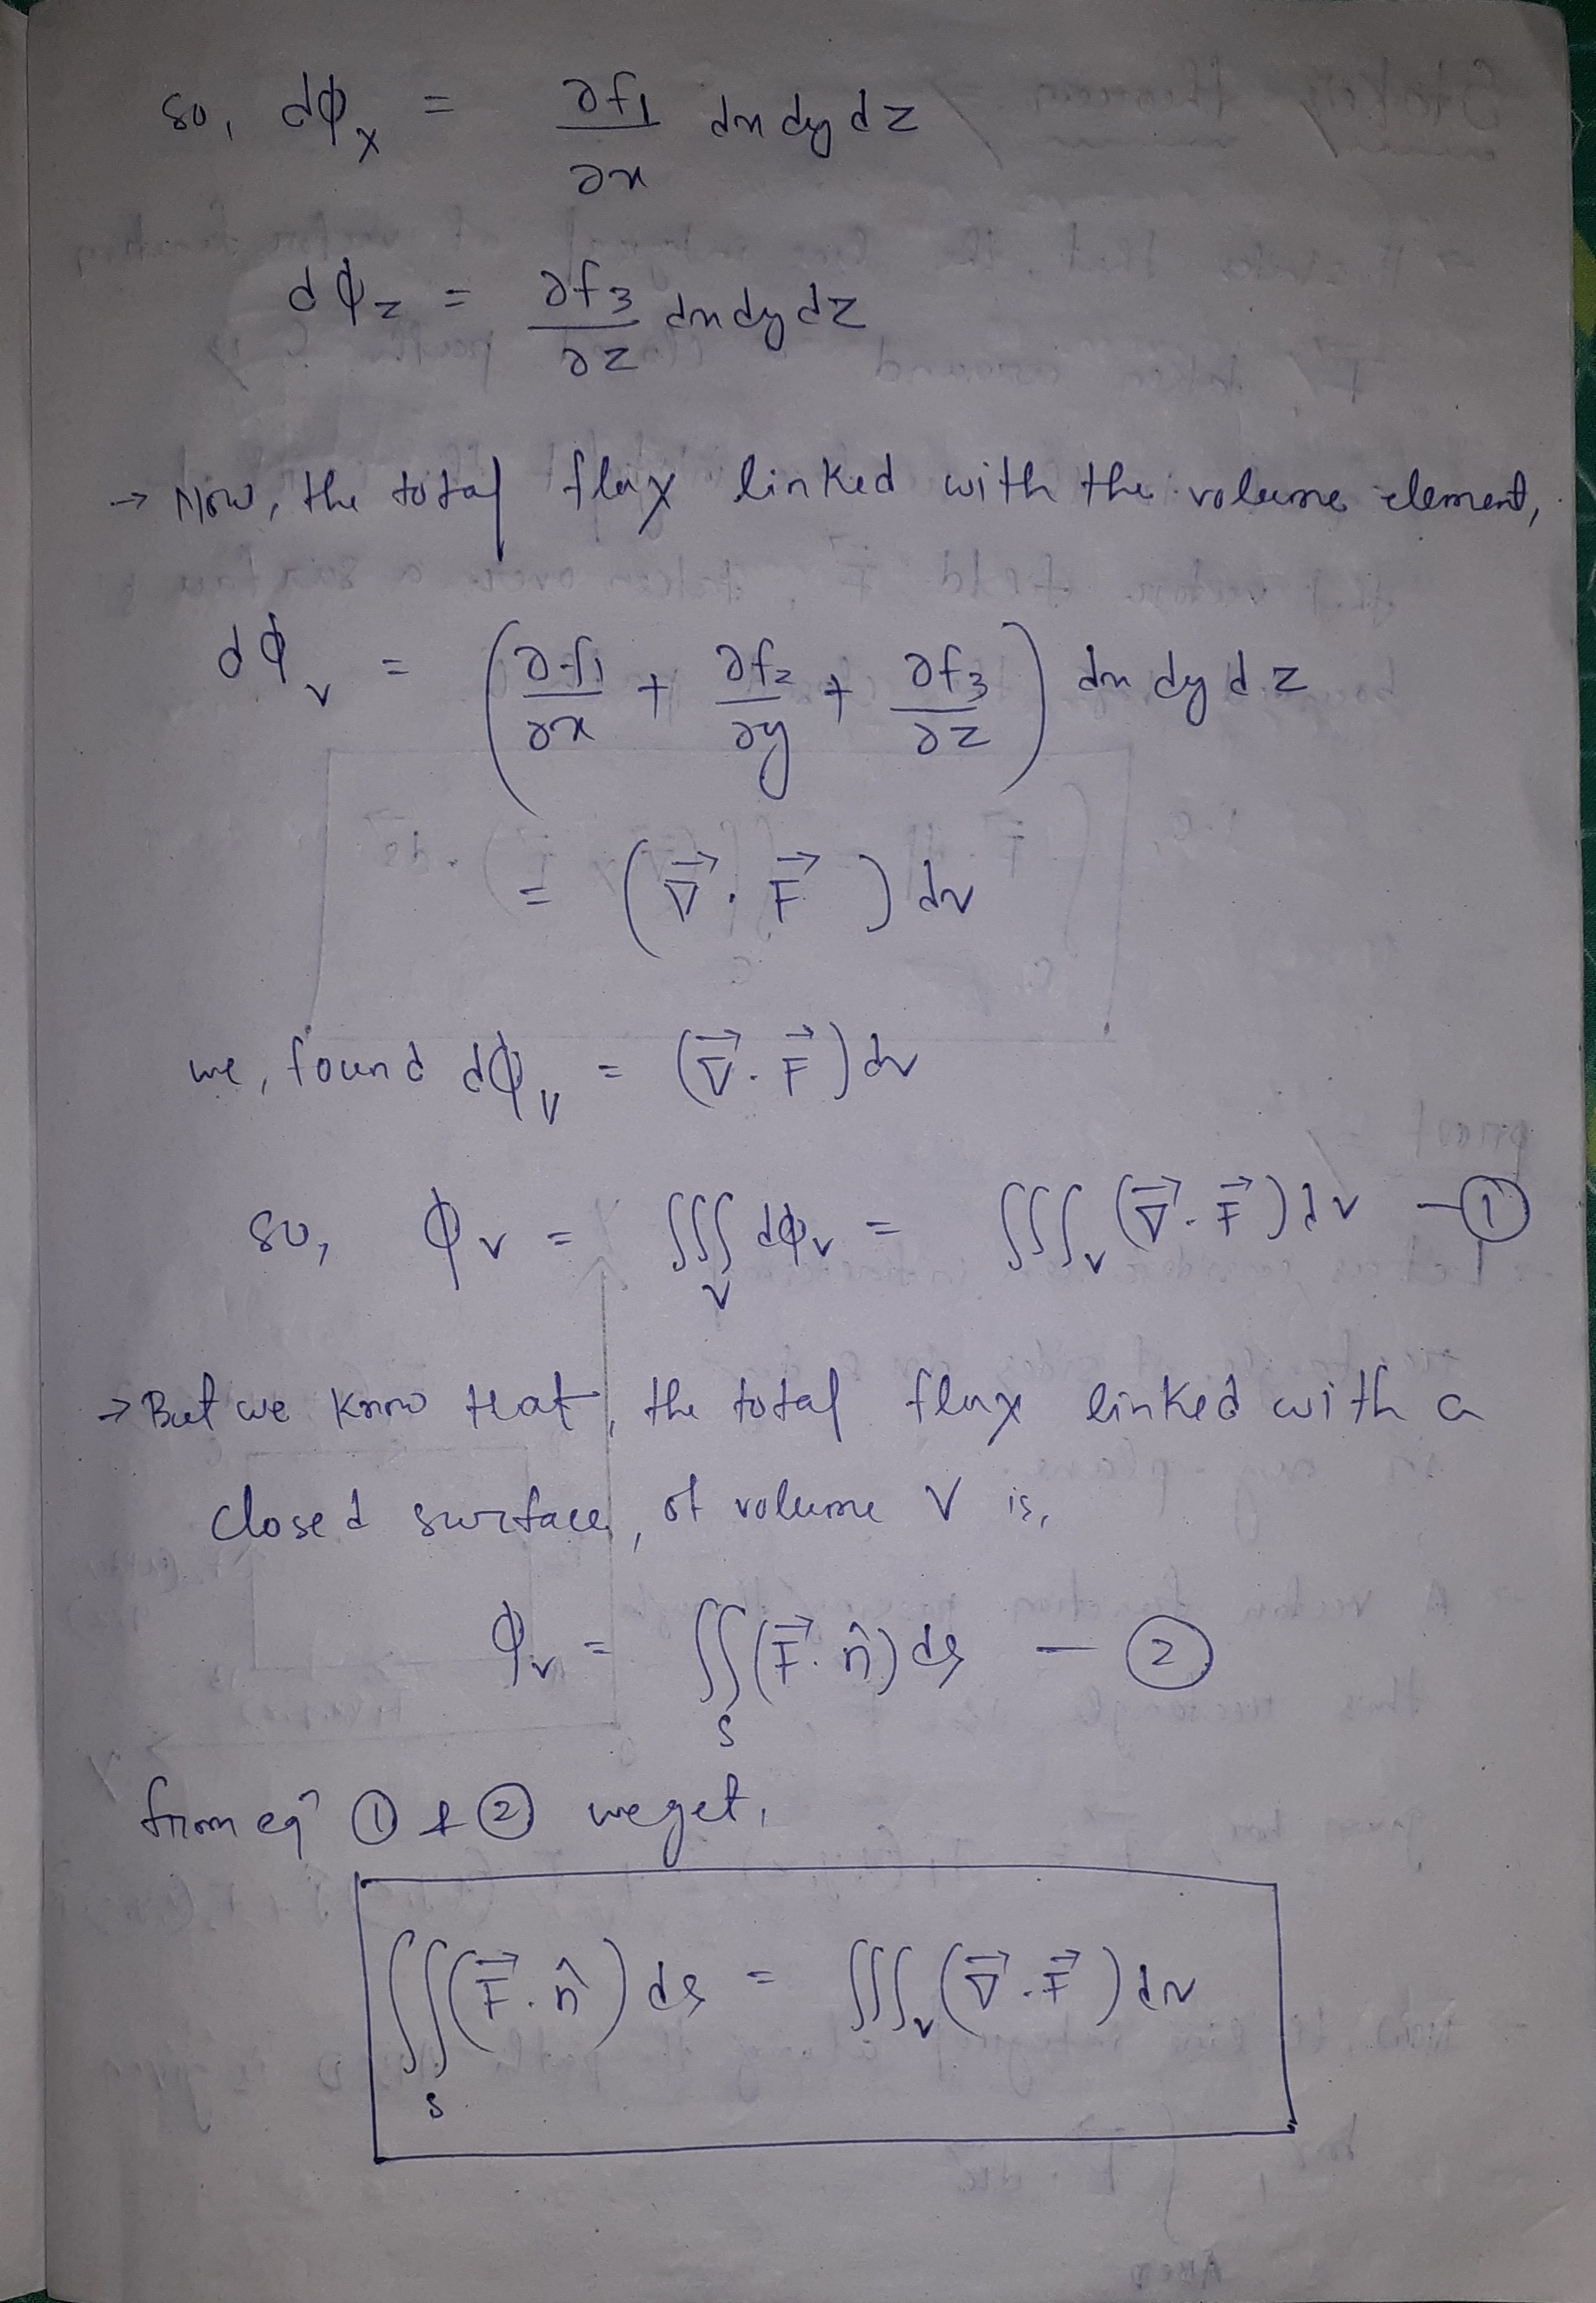 so, dϕₓ = ∂f₁/∂x dx dy dz
dϕ_z = ∂f₃/∂z dx dy dz
→ Now, the total flux linked with the volume element,
dϕ_v = (∂f₁/∂x + ∂f₂/∂y + ∂f₃/∂z) dx dy dz
= (∇⃗ . F⃗) dv
we, found dϕ_v = (∇⃗ . F⃗) dv
so, ϕ_v = ∭_v dϕ_v = ∭_v (∇⃗ . F⃗) dv — ①
→ But we know that, the total flux linked with a
closed surface, of volume V is,
ϕ_v = ∬_s (F⃗ . n̂) ds — ②
from eqⁿ ① & ② we get,
∬_s (F⃗ . n̂) ds = ∭_v (∇⃗ . F⃗) dv